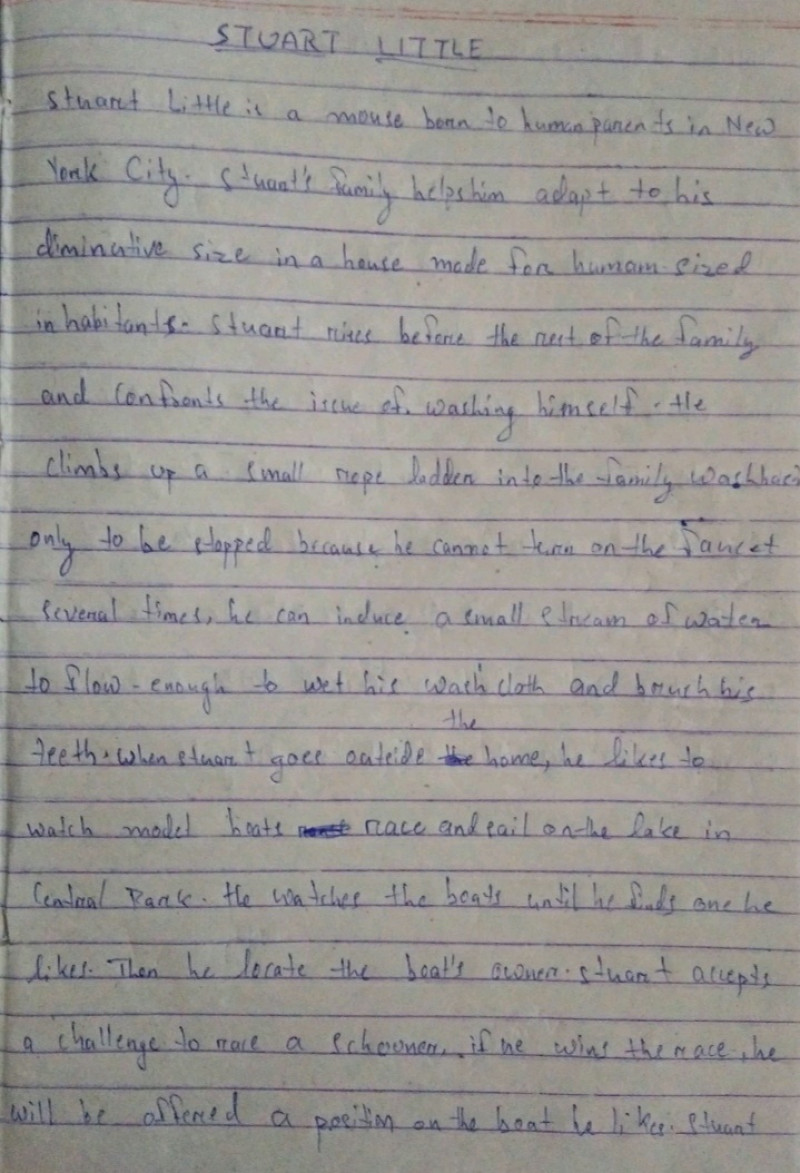 STUART LITTLE
Stuart Little is a mouse born to human parents in New
York City. Stuart's family helps him adapt to his
diminutive size in a house made for humam-sized
inhabitants. Stuart rises before the rest of the family
and confronts the issue of. washing himself. He
climbs up a small rope ladder into the family washbasi
only to be stopped because he cannot turn on the faucet
several times, he can induce a small stream of water
to flow - enough to wet his wash cloth and brush his
teeth. when stuart goes outside the home, he likes to
watch model boats race and sail on the lake in
Central Park. He watches the boats until he finds one he
likes. Then he locate the boat's owner. stuart accepts
a challenge to race a schooner, if he wins the race, he
will be offered a position on the boat he likes. Stuart